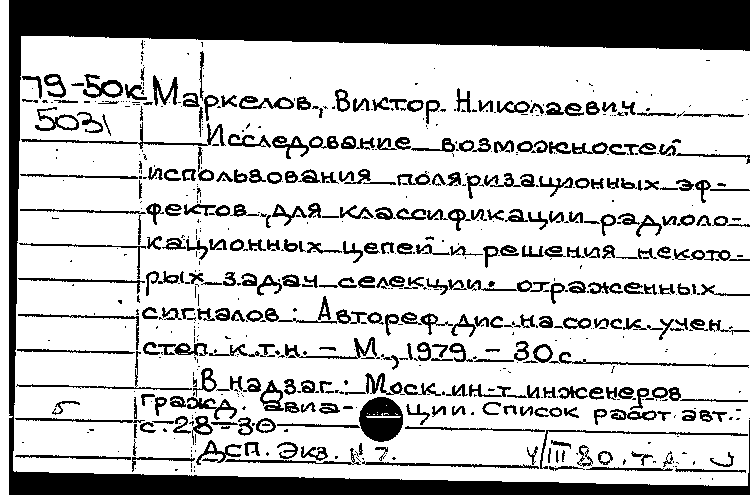 79-50к Маркелов, Виктор Николаевич.
5031 Исследование возможностей
использования поляризационных эф-
фектов для классификации радиоло-
кационных цепей и решения некото-
рых задач селекции отраженных
сигналов: Автореф.дис.на соиск.учен.
степ. к.т.н. - М., 1979. - 30с.
В надзаг.: Моск.ин-т инженеров
5 гражд. авиа- ции. Список работ авт.:
с.28-30.
ДСП. Экз. №7.